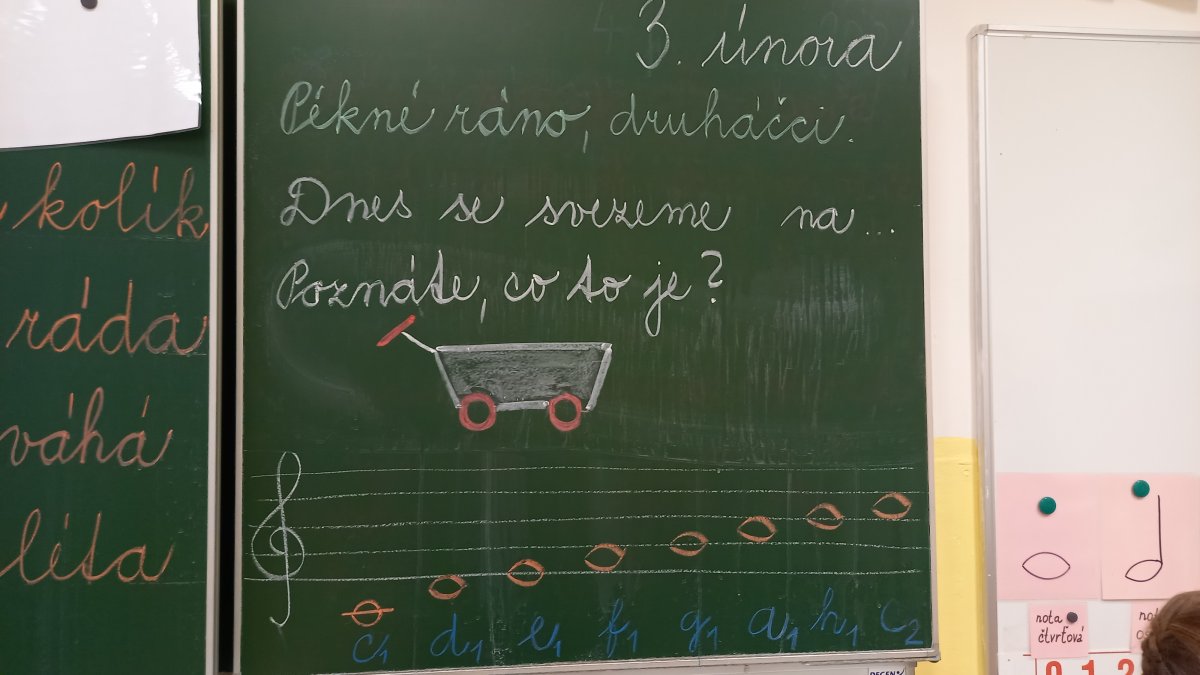 kolík
ráda
váhá
léta
3. února
Pěkné ráno, druháčci.
Dnes se svezeme na...
Poznáte, co to je?
c1 d1 e1 f1 g1 a1 h1 c2
nota
čtvrťová
nota
0 1 2